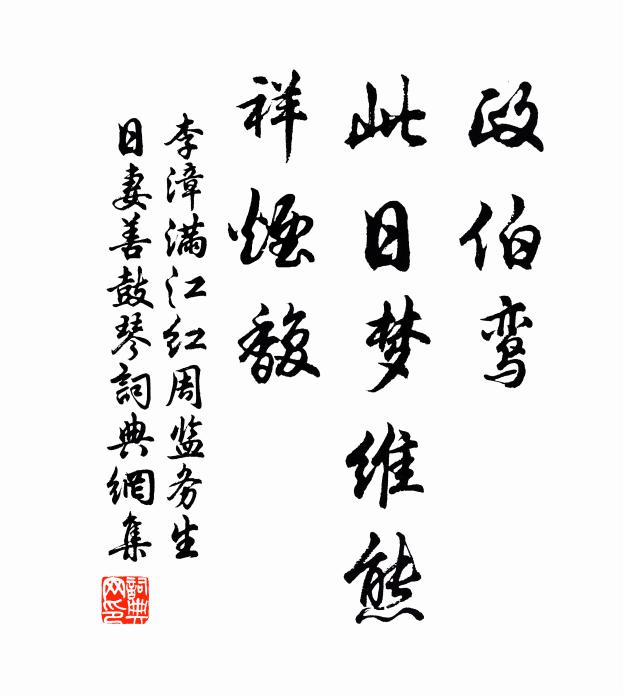 政伯鸾
此日梦维熊
祥煙馥
李漳满江红周监务生
日妻善鼓琴詞典網集
詞典网印